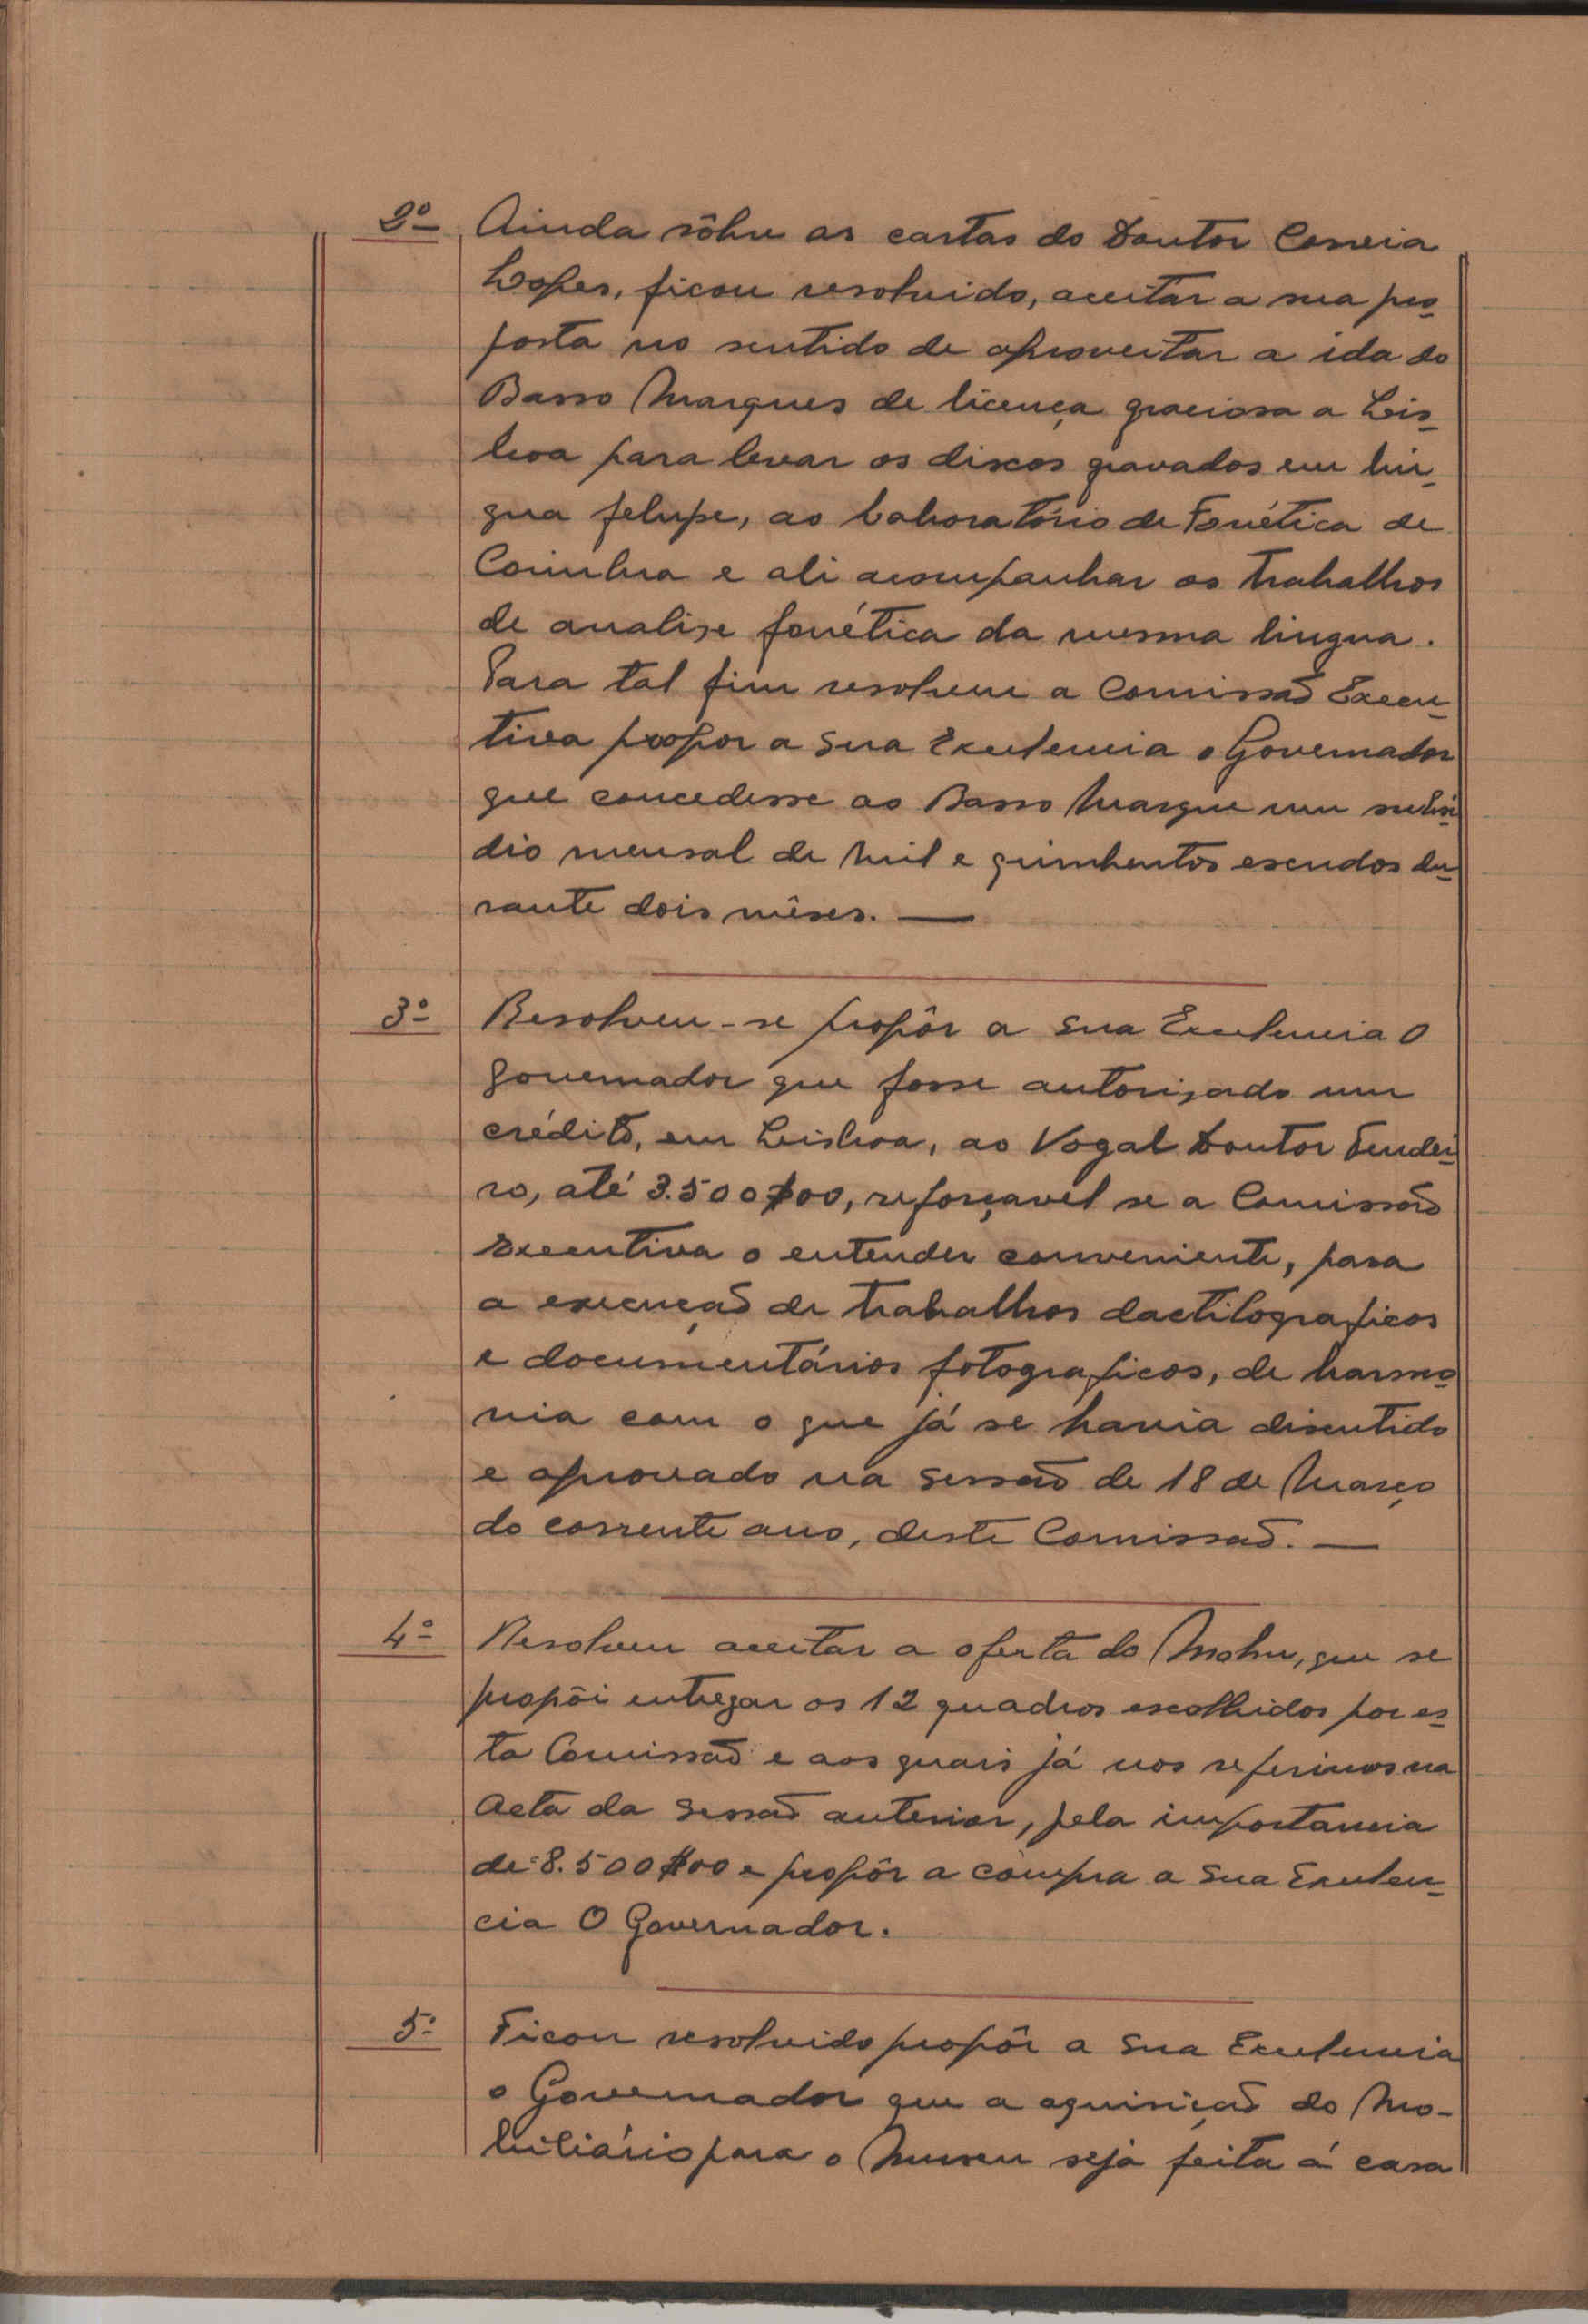 2º Ainda sôbre as cartas do Doutor Correia
Lopes, ficou resolvido, aceitar a sua pro-
posta no sentido de aproveitar a ida do
Basso Marques de licença graciosa a Lis-
boa para levar os discos gravados em lin-
gua felupe, ao Laboratório de Fonética de
Coimbra e ali acompanhar os trabalhos
de analise fonética da mesma lingua.
Para tal fim resolveu a Comissão Execu-
tiva propor a Sua Excelencia o Governador
que concedesse ao Basso Marque um subsi-
dio mensal de mil e quinhentos escudos du-
rante dois mêses. —
3º Resolveu-se propôr a Sua Excelencia O
Governador que fosse autorizado um
crédito, em Lisboa, ao Vogal Doutor Tendei-
ro, até 3.500$00, reforçavel se a Comissão
Executiva o entender conveniente, para
a execução de trabalhos dactilograficos
e documentários fotograficos, de harmo-
nia com o que já se havia discutido
e aprovado na sessão de 18 de Março
do corrente ano, deste Comissão. —
4º Resolveu aceitar a oferta do que se
propôi entregar os 12 quadros escolhidos por es-
ta Comissão e aos quais já nos referimos na
Acta da sessão anterior, pela importancia
de 8.500$00 e propôr a compra a Sua Excelen-
cia O Governador.
5º Ficou resolvido propôr a Sua Excelencia
o Governador que a aquisição do Mo-
biliário para o Museu seja feita á casa